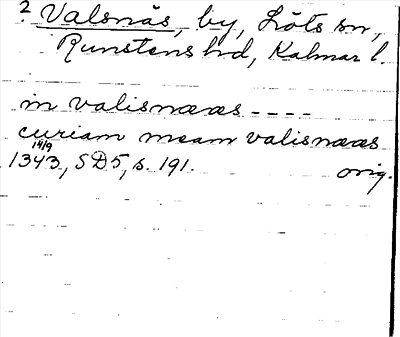 2 Valsnäs, by, Löts sn,
Runstens hd, Kalmar l.
in valisnæs ----
curiam meam valisnæs
14/9
1343, SD5, s. 191. orig.